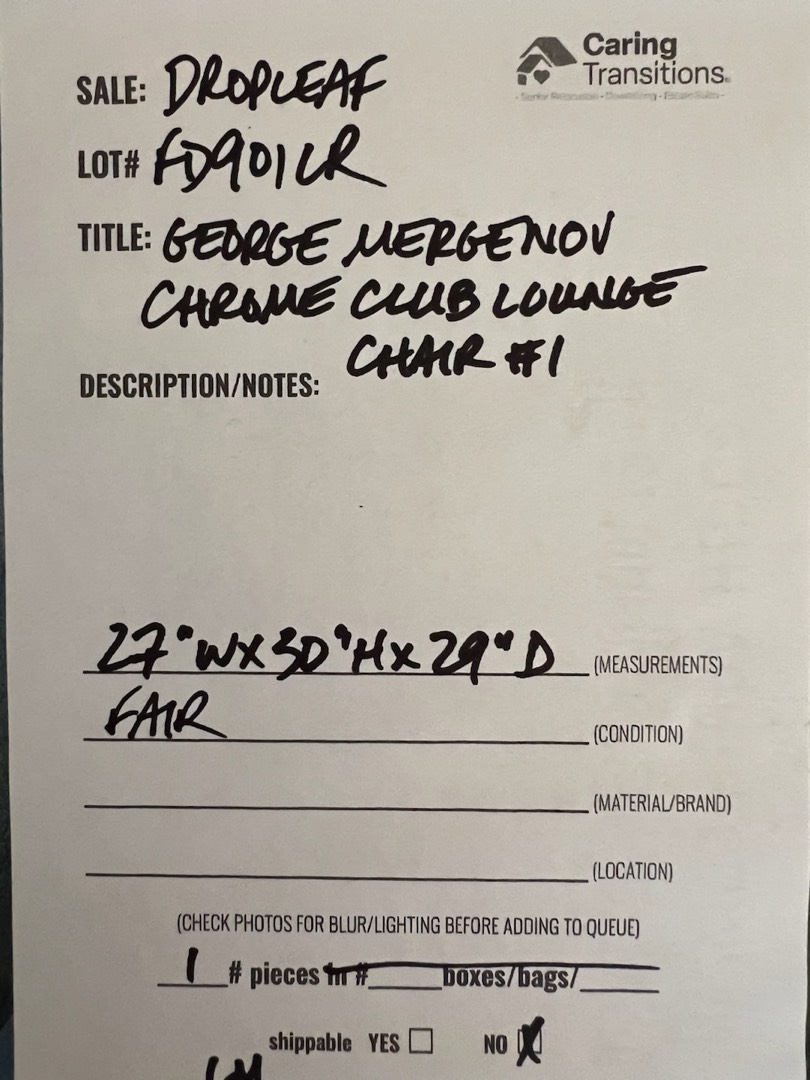 Caring
Transitions
SALE: DROPLEAF
LOT# FD901LR
TITLE: GEORGE MERGENOV
CHROME CLUB LOUNGE
CHAIR #1
DESCRIPTION/NOTES:
27"W X 30"H X 29"D (MEASUREMENTS)
FAIR (CONDITION)
(MATERIAL/BRAND)
(LOCATION)
(CHECK PHOTOS FOR BLUR/LIGHTING BEFORE ADDING TO QUEUE)
1 # pieces in # boxes/bags/
shippable YES NO X